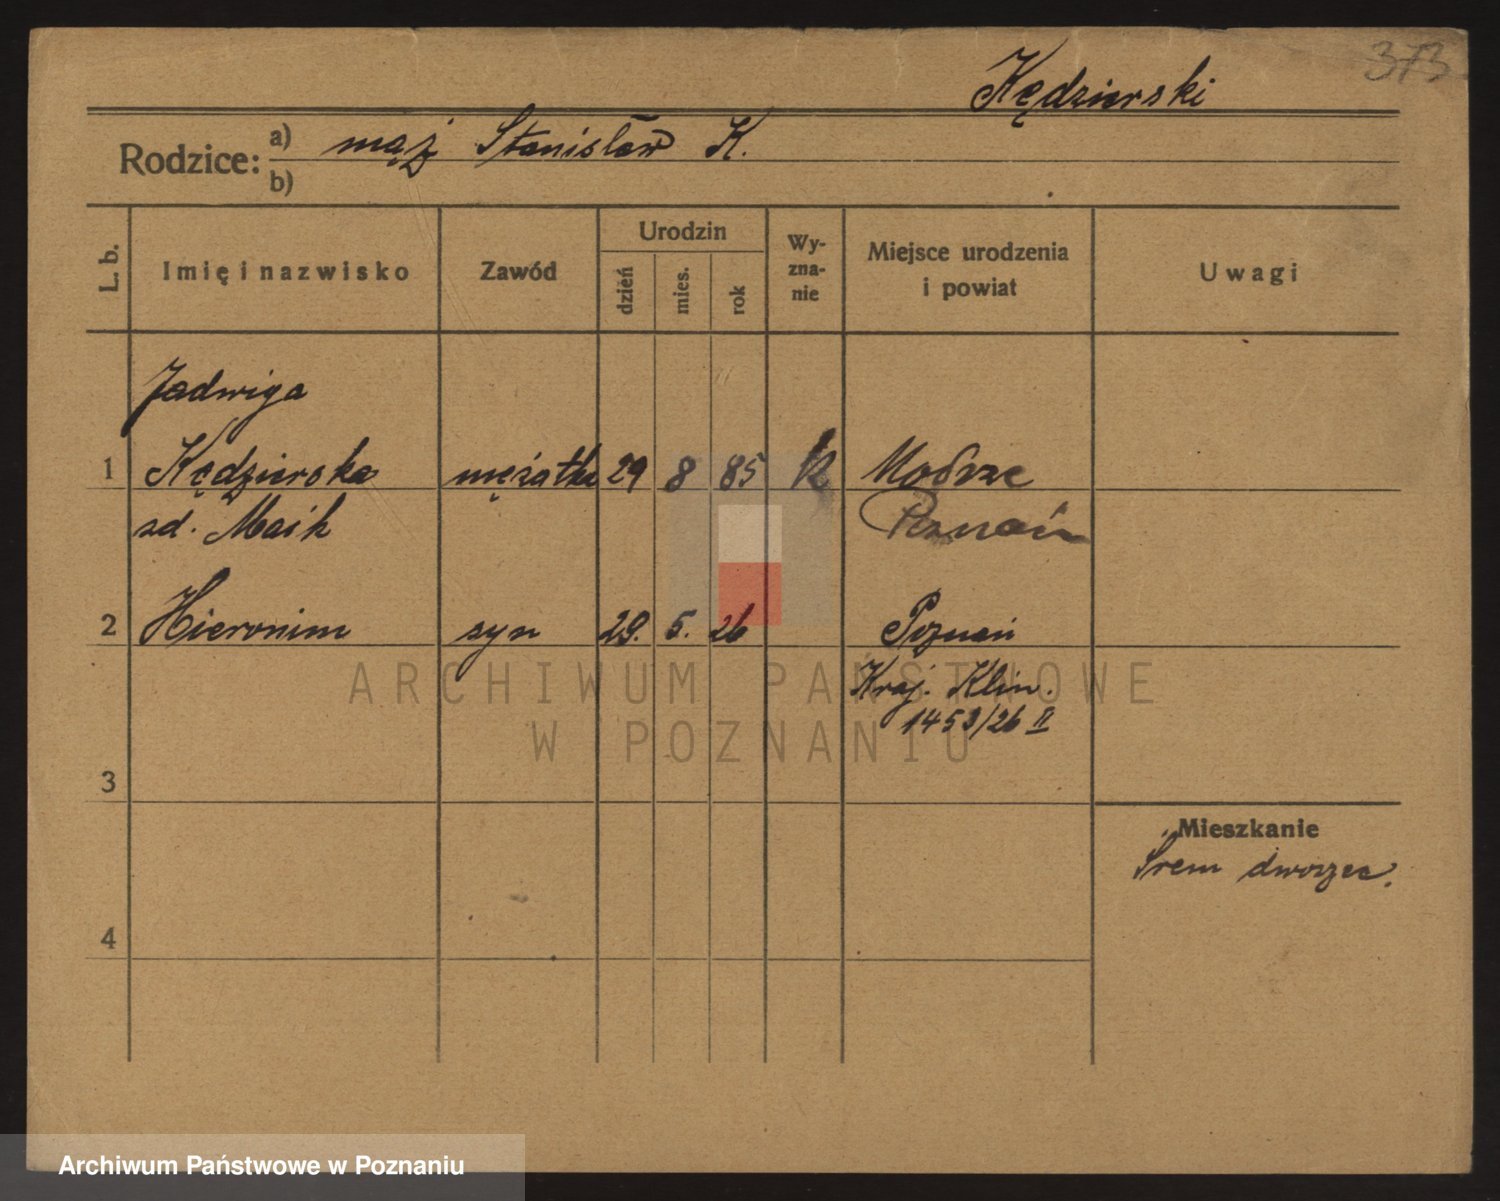 373
Kędzierski
Rodzice: a) mąż Stanisław K.
b)
L. b. Imię i nazwisko Zawód Urodzin dzień mies. rok Wyznanie Miejsce urodzenia i powiat Uwagi
Jadwiga
1 Kędzierska mężatka 29 8 85 k Modrze
zd. Maik Poznań
2 Hieronim syn 29. 5. 26 Poznań
Kraj. Klin.
1453/26 II
3
Mieszkanie
Śrem dworzec.
4
ARCHIWUM PAŃSTWOWE
W POZNANIU
Archiwum Państwowe w Poznaniu